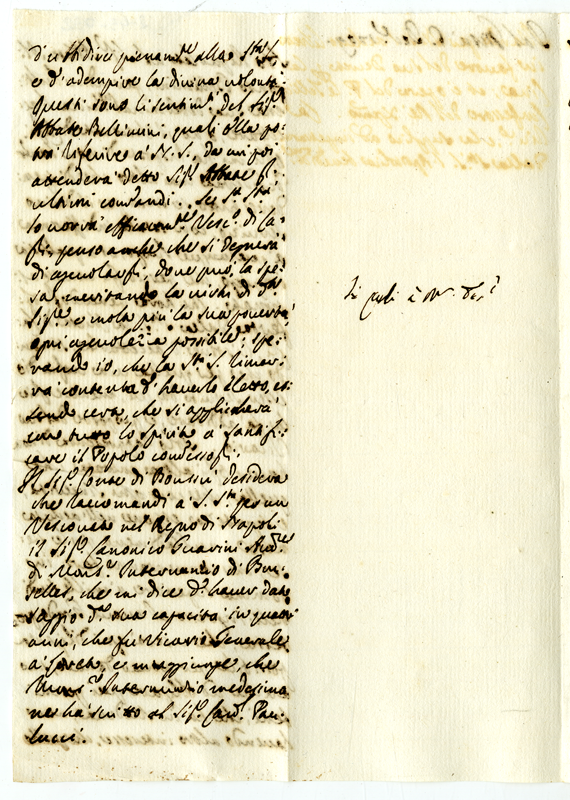 d'ubbidire pienam.te alla S.tà S.
e d'adempire la divina volontà.
Questi sono li sentim.ti del Sig.r
Abbate Bellinini, quali ella po-
trà riferire à N. S., da cui poi
attenderà detto Sig.r Abbate gl'
ultimi comandi. Se S. S.tà
lo vorrà Vesc.o di Ca-
penso anche che si degnerà
di agevolargli, dove può, la spe-
sa, meritando la di d.o
Sig.re, e molto più la sua povertà
ogni agevolezza possibile; spe-
rando io, che la S.tà S. rimar-
rà contenta d'haverlo eletto, es-
sendo certa, che si applicherà
con tutto lo spirito a santifi-
care il Popolo
Il Sig.r Conte di desidera
che raccomandi à S. S.tà per un
Vescovato nel Regno di Napoli
il Sig.r Canonico Guarini Aud.re
di Mons.r Internuntio di Bru-
selles, che mi dice d'haver dato
saggio d. sua capacità in quattr
anni, che fu Vicario Generale
à e m'aggiunge, che
Mons.r Internuntio medesimo
ne hà scritto al Sig.r Card. Pau-
lucci